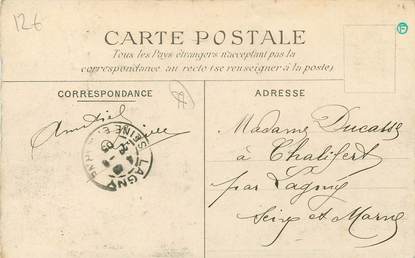 12€
CARTE POSTALE
Tous les Pays étrangers n'acceptant pas la
correspondance au recto (se renseigner à la poste)
CORRESPONDANCE
ADRESSE
Madame Ducasse
à Chalifert
par Lagny
Seine et Marne
LAGNY